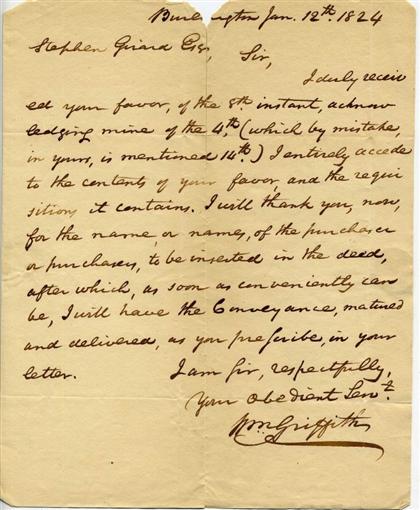 Burlington Jan. 12th. 1824
Stephen Girard Esqr,
Sir,
I duly receiv
ed your favor, of the 8th instant, acknow
ledging mine of the 4th, (which by mistake,
in yours, is mentioned 14th.) I entirely accede
to the contents of your favor, and the requi
sitions it contains. I will thank you, now,
for the name, or names, of the purchaser
or purchasers, to be inserted in the deed,
after which, as soon as conveniently can
be, I will have the Conveyance, matured
and delivered, as you prescribe, in your
letter.
I am Sir, respectfully,
Your obedient Servt.
Wm Griffith